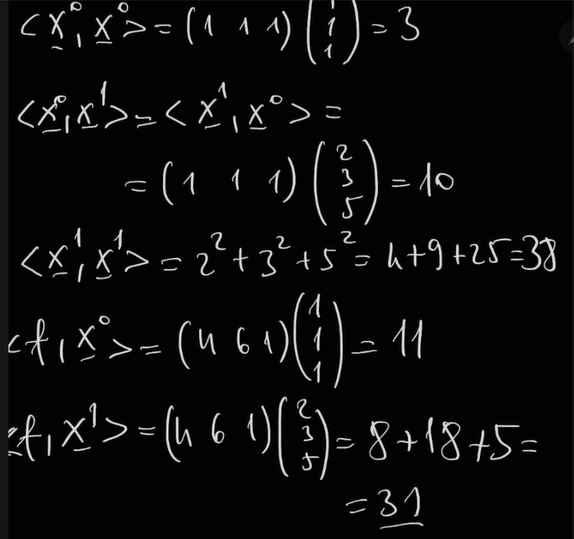 <x⁰, x⁰> = (1 1 1) (1 1 1) = 3
<x⁰, x¹> = <x¹, x⁰> =
= (1 1 1) (2 3 5) = 10
<x¹, x¹> = 2² + 3² + 5² = 4+9+25=38
<f, x⁰> = (4 6 1) (1 1 1) = 11
<f, x¹> = (4 6 1) (2 3 5) = 8+18+5=
= 31